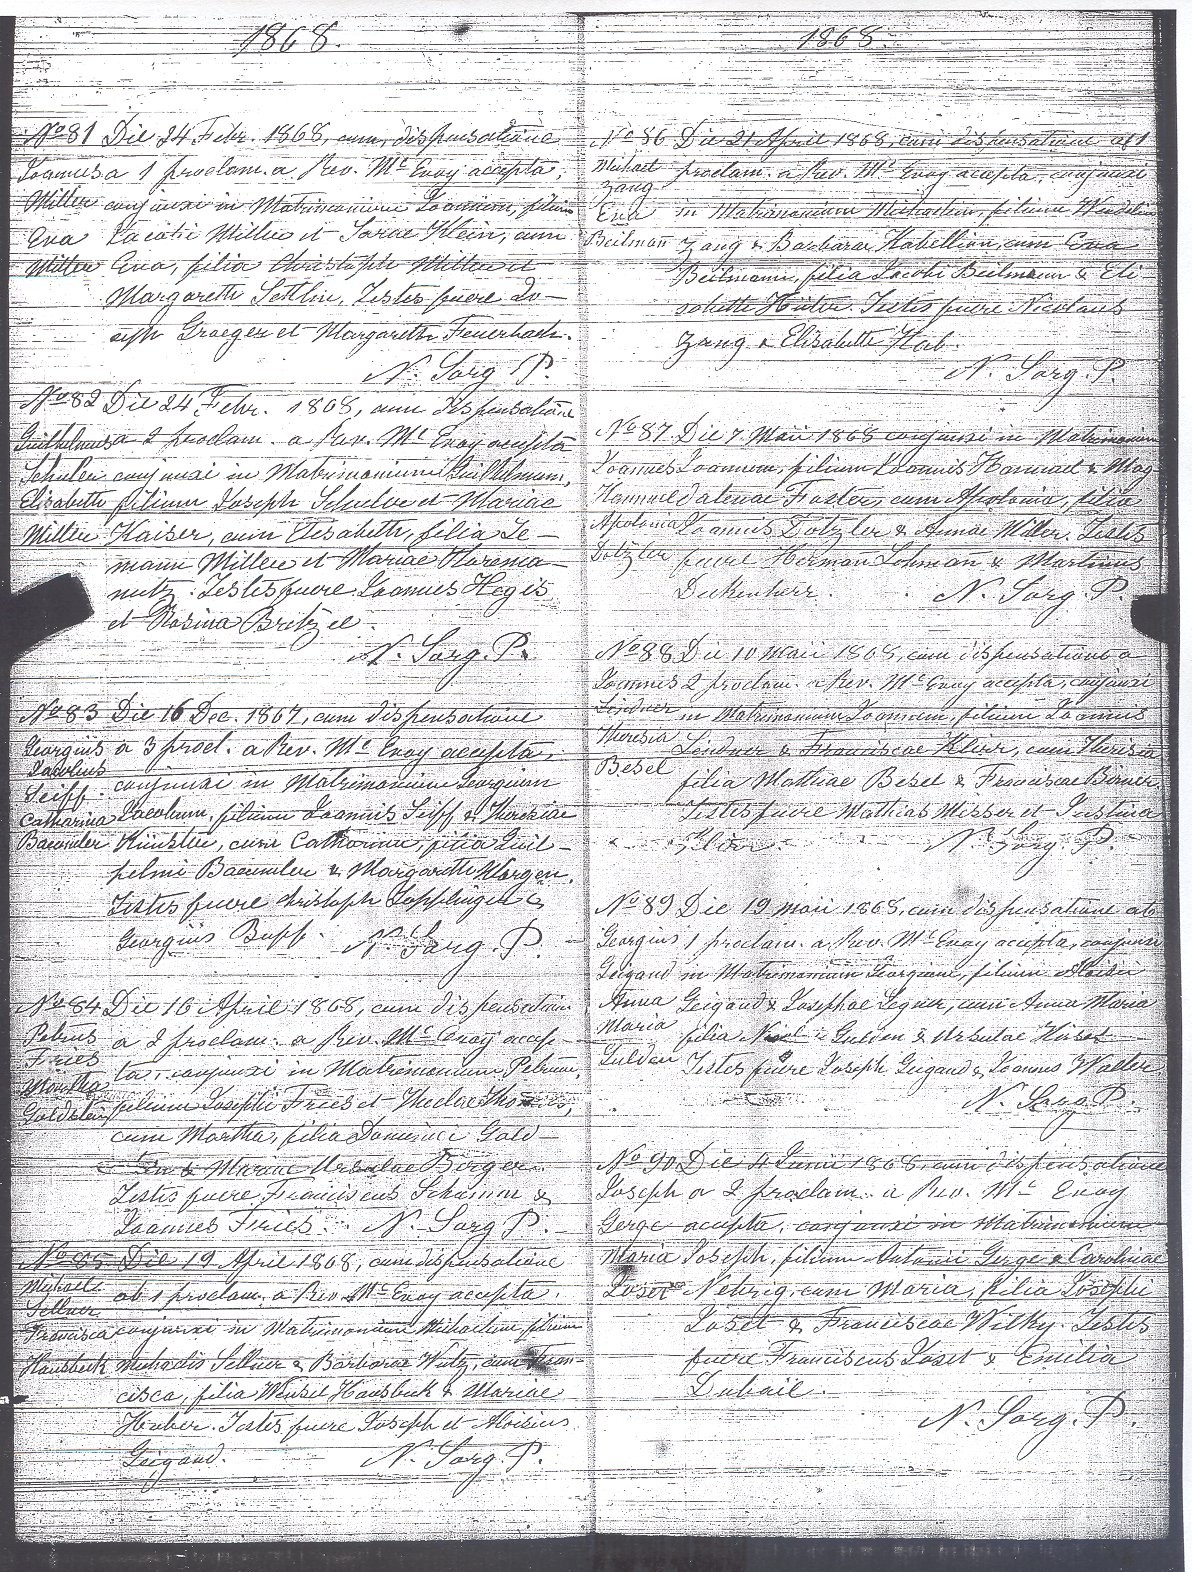 1868.
No 81 Die 24 Febr. 1868, cum dispensatione
Joannes a 1 proclam. a Rev. Mc Evoy accepta,
Miller conjunxi in Matrimonium Joannem, filium
Eva Jacobi Miller et Sarae Klein, cum
Miller Eva, filia Christoph Miller et
Margareth Settlin. Testes fuere Jo-
seph Graeger et Margareth Feuerbach.
N. Sorg P.
No 82 Die 24 Febr. 1868, cum dispensatione
Guilhelmus a 2 proclam. a Rev. Mc Evoy accepta
Schuler conjunxi in Matrimonium Guilhelmum,
Elisabeth filium Joseph Schuler et Mariae
Miller Kaiser, cum Elisabeth, filia Se-
mann Miller et Mariae
Testes fuere Joannes Hegis
et Rosina Britzel.
N. Sorg. P.
No 83 Die 16 Dec. 1867, cum dispensatione
Georgius a 3 procl. a Rev. Mc Evoy accepta,
Jacobus conjunxi in Matrimonium Georgium
Seiff.
Catharina Jacobum, filium Joannis Seiff & Theresiae
Baeumler Künstler, cum Catharina, filia Guil-
helmi Baeumler & Margareth Morgen.
Testes fuere Christoph &
Georgius Bupp. N. Sorg P.
No 84 Die 16 April 1868, cum dispensation
Petrus a 2 proclam. a Rev. Mc Evoy accep-
Fries ta, conjunxi in Matrimonium Petrum,
Martha
Goldstein filium Josephi Fries et Theclae Thomas,
cum Martha, filia Dominici Gold-
& Mariae Ursulae Berger.
Testes fuere Franciscus Schamm &
Joannes Fries. N. Sorg P.
No 85 Die 19 April 1868, cum dispensatione
Michael ab 1 proclam. a Rev. Mc Evoy accepta,
Sellner
Francisca conjunxi in Matrimonium Michaelem filium
Hausbeck Michaelis Sellner & Barbarae Wutz, cum Fran-
cisca, filia Wensel Hausbeck & Mariae
Huber. Testes fuere Joseph et Aloisius
Geigand. N. Sorg. P.
1868.
No 86 Die 21 April 1868, cum dispensatione ab 1
Michael proclam. a Rev. Mc Evoy accepta, conjunxi
Zang
Eva in Matrimonium Michaelem, filium Wendelin
Beilmann Zang & Barbarae Kabellion, cum Eva
Beilmann, filia Jacobi Beilmann & Eli
sabeth Hüter. Testes fuere Nicolaus
Zang & Elisabeth Hab.
N. Sorg. P.
No 87 Die 7 Maii 1868 conjunxi in Matrimonium
Joannes Joannem, filium Joannis Honnact & Mag-
dalenae Foster, cum Apolonia, filia
Apolonia Joannis Dotzler & Annae Miller. Testes
Dotzler fuere Herman Lohmann & Martinus
Deckenherr. N. Sorg. P.
No 88 Die 10 Maii 1868, cum dispensatione a
Joannes 2 proclam. a Rev. Mc Evoy accepta, conjunxi
Lindner in Matrimonium Joannem, filium Joannis
Theresia Lindner & Franciscae Klier, cum Theresia
Besel filia Mathiae Besel & Franciscae Birner.
Testes fuere Mathias Messer et Justina
Klier. N. Sorg. P.
No 89 Die 19 Maii 1868, cum dispensatione ab
Georgius 1 proclam. a Rev. Mc Evoy accepta, conjunxi
Geigand in Matrimonium Georgium, filium Aloisii
Anna Geigand & Josephae Legner, cum Anna Maria
Maria filia Gulden & Ursulae
Gulden Testes fuere Joseph Geigand & Joannes Walter
N. Sorg P.
No 90 Die 4 Junii 1868, cum dispensatione
Joseph a 2 proclam. a Rev. Mc Evoy
Gerge accepta, conjunxi in Matrimonium
Maria Joseph, filium Antonii Gerge & Carolinae
Loset Nehrig, cum Maria, filia Josephi
Loset & Franciscae Wilky. Testes
fuere Franciscus Loset & Emilia
Dubail.
N. Sorg. P.